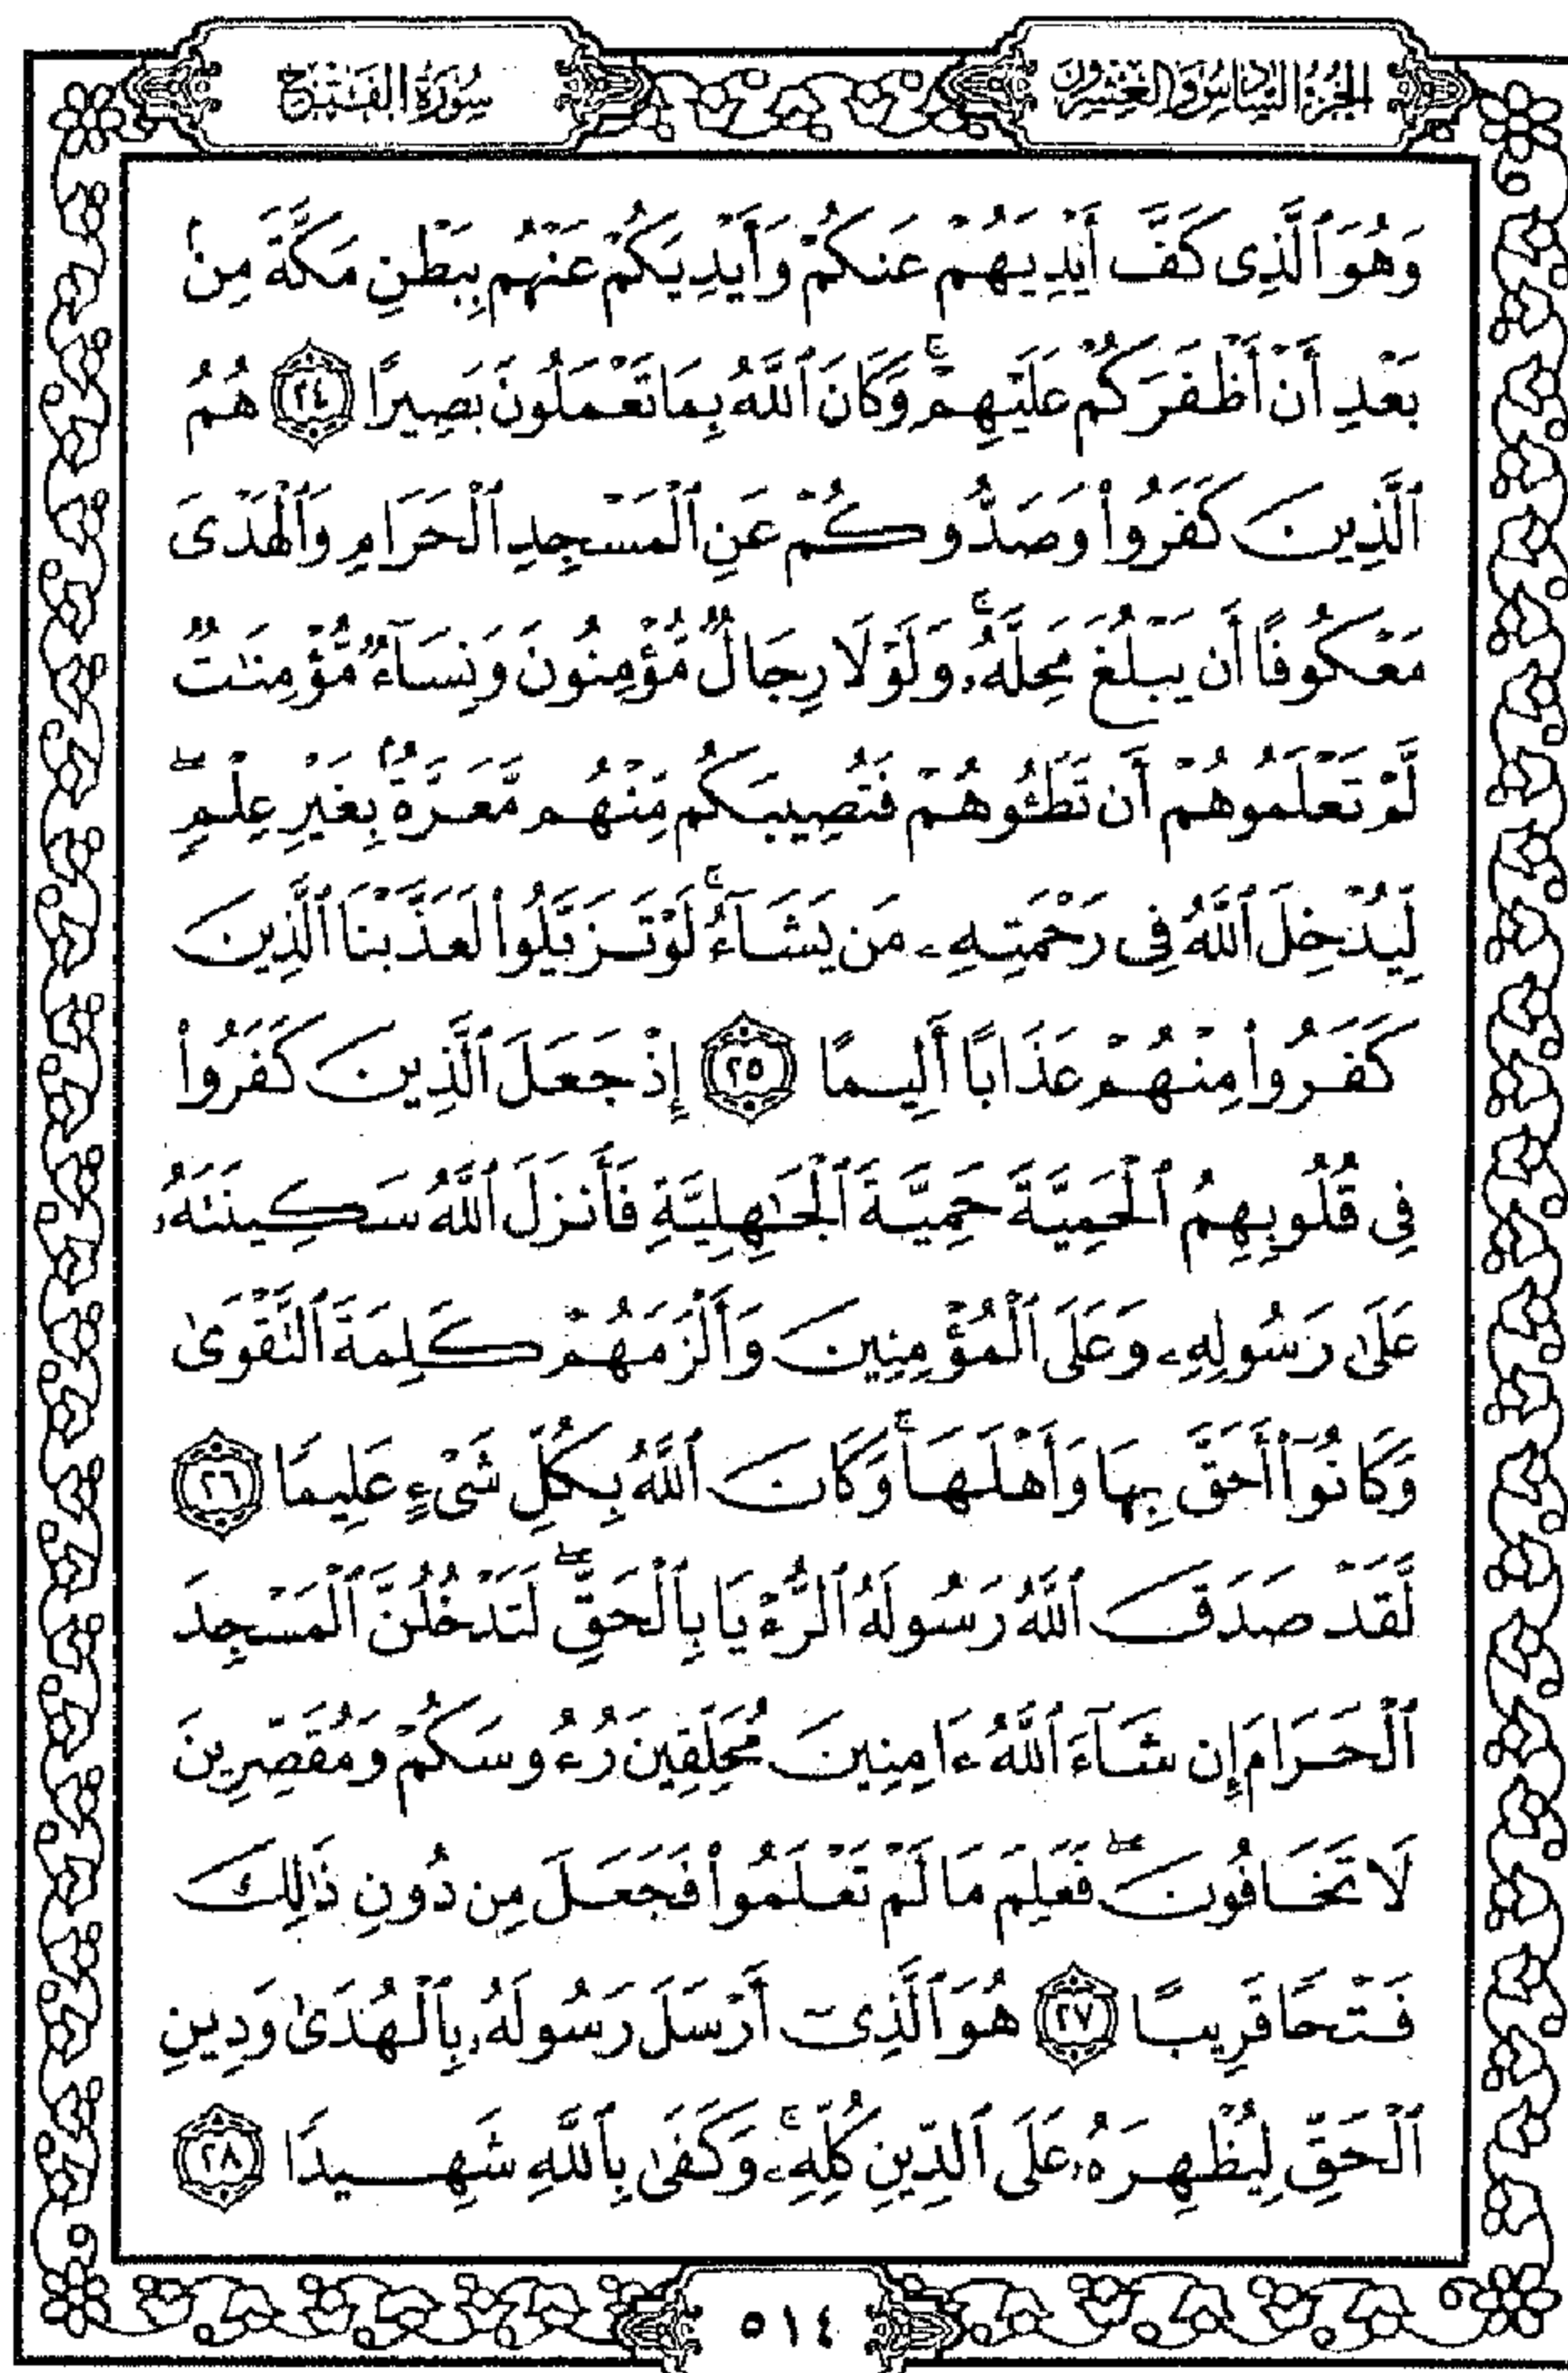 الجزء السادس والعشرون
سورة الفتح
وَهُوَ ٱلَّذِى كَفَّ أَيْدِيَهُمْ عَنكُمْ وَأَيْدِيَكُمْ عَنْهُم بِبَطْنِ مَكَّةَ مِنۢ
بَعْدِ أَنْ أَظْفَرَكُمْ عَلَيْهِمْ ۚ وَكَانَ ٱللَّهُ بِمَا تَعْمَلُونَ بَصِيرًا ٢٤ هُمُ
ٱلَّذِينَ كَفَرُوا۟ وَصَدُّوكُمْ عَنِ ٱلْمَسْجِدِ ٱلْحَرَامِ وَٱلْهَدْىَ
مَعْكُوفًا أَن يَبْلُغَ مَحِلَّهُۥ ۚ وَلَوْلَا رِجَالٌ مُّؤْمِنُونَ وَنِسَآءٌ مُّؤْمِنَـٰتٌ
لَّمْ تَعْلَمُوهُمْ أَن تَطَـُٔوهُمْ فَتُصِيبَكُم مِّنْهُم مَّعَرَّةٌۢ بِغَيْرِ عِلْمٍ ۖ
لِّيُدْخِلَ ٱللَّهُ فِى رَحْمَتِهِۦ مَن يَشَآءُ ۚ لَوْ تَزَيَّلُوا۟ لَعَذَّبْنَا ٱلَّذِينَ
كَفَرُوا۟ مِنْهُمْ عَذَابًا أَلِيمًا ٢٥ إِذْ جَعَلَ ٱلَّذِينَ كَفَرُوا۟
فِى قُلُوبِهِمُ ٱلْحَمِيَّةَ حَمِيَّةَ ٱلْجَـٰهِلِيَّةِ فَأَنزَلَ ٱللَّهُ سَكِينَتَهُۥ
عَلَىٰ رَسُولِهِۦ وَعَلَى ٱلْمُؤْمِنِينَ وَأَلْزَمَهُمْ كَلِمَةَ ٱلتَّقْوَىٰ
وَكَانُوٓا۟ أَحَقَّ بِهَا وَأَهْلَهَا ۚ وَكَانَ ٱللَّهُ بِكُلِّ شَىْءٍ عَلِيمًا ٢٦
لَّقَدْ صَدَقَ ٱللَّهُ رَسُولَهُ ٱلرُّءْيَا بِٱلْحَقِّ ۖ لَتَدْخُلُنَّ ٱلْمَسْجِدَ
ٱلْحَرَامَ إِن شَآءَ ٱللَّهُ ءَامِنِينَ مُحَلِّقِينَ رُءُوسَكُمْ وَمُقَصِّرِينَ
لَا تَخَافُونَ ۖ فَعَلِمَ مَا لَمْ تَعْلَمُوا۟ فَجَعَلَ مِن دُونِ ذَٰلِكَ
فَتْحًا قَرِيبًا ٢٧ هُوَ ٱلَّذِىٓ أَرْسَلَ رَسُولَهُۥ بِٱلْهُدَىٰ وَدِينِ
ٱلْحَقِّ لِيُظْهِرَهُۥ عَلَى ٱلدِّينِ كُلِّهِۦ ۚ وَكَفَىٰ بِٱللَّهِ شَهِيدًا ٢٨
٥١٤